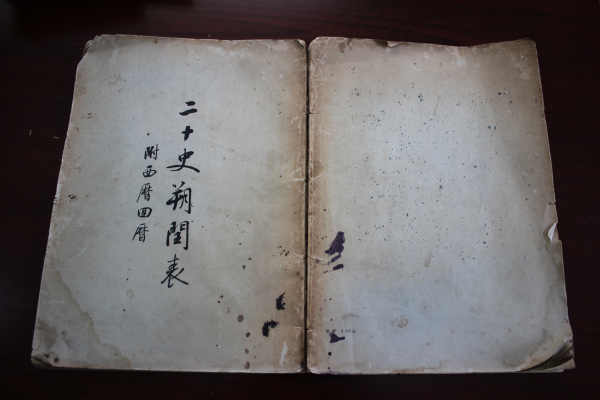 二十史朔閏表
附西曆回曆